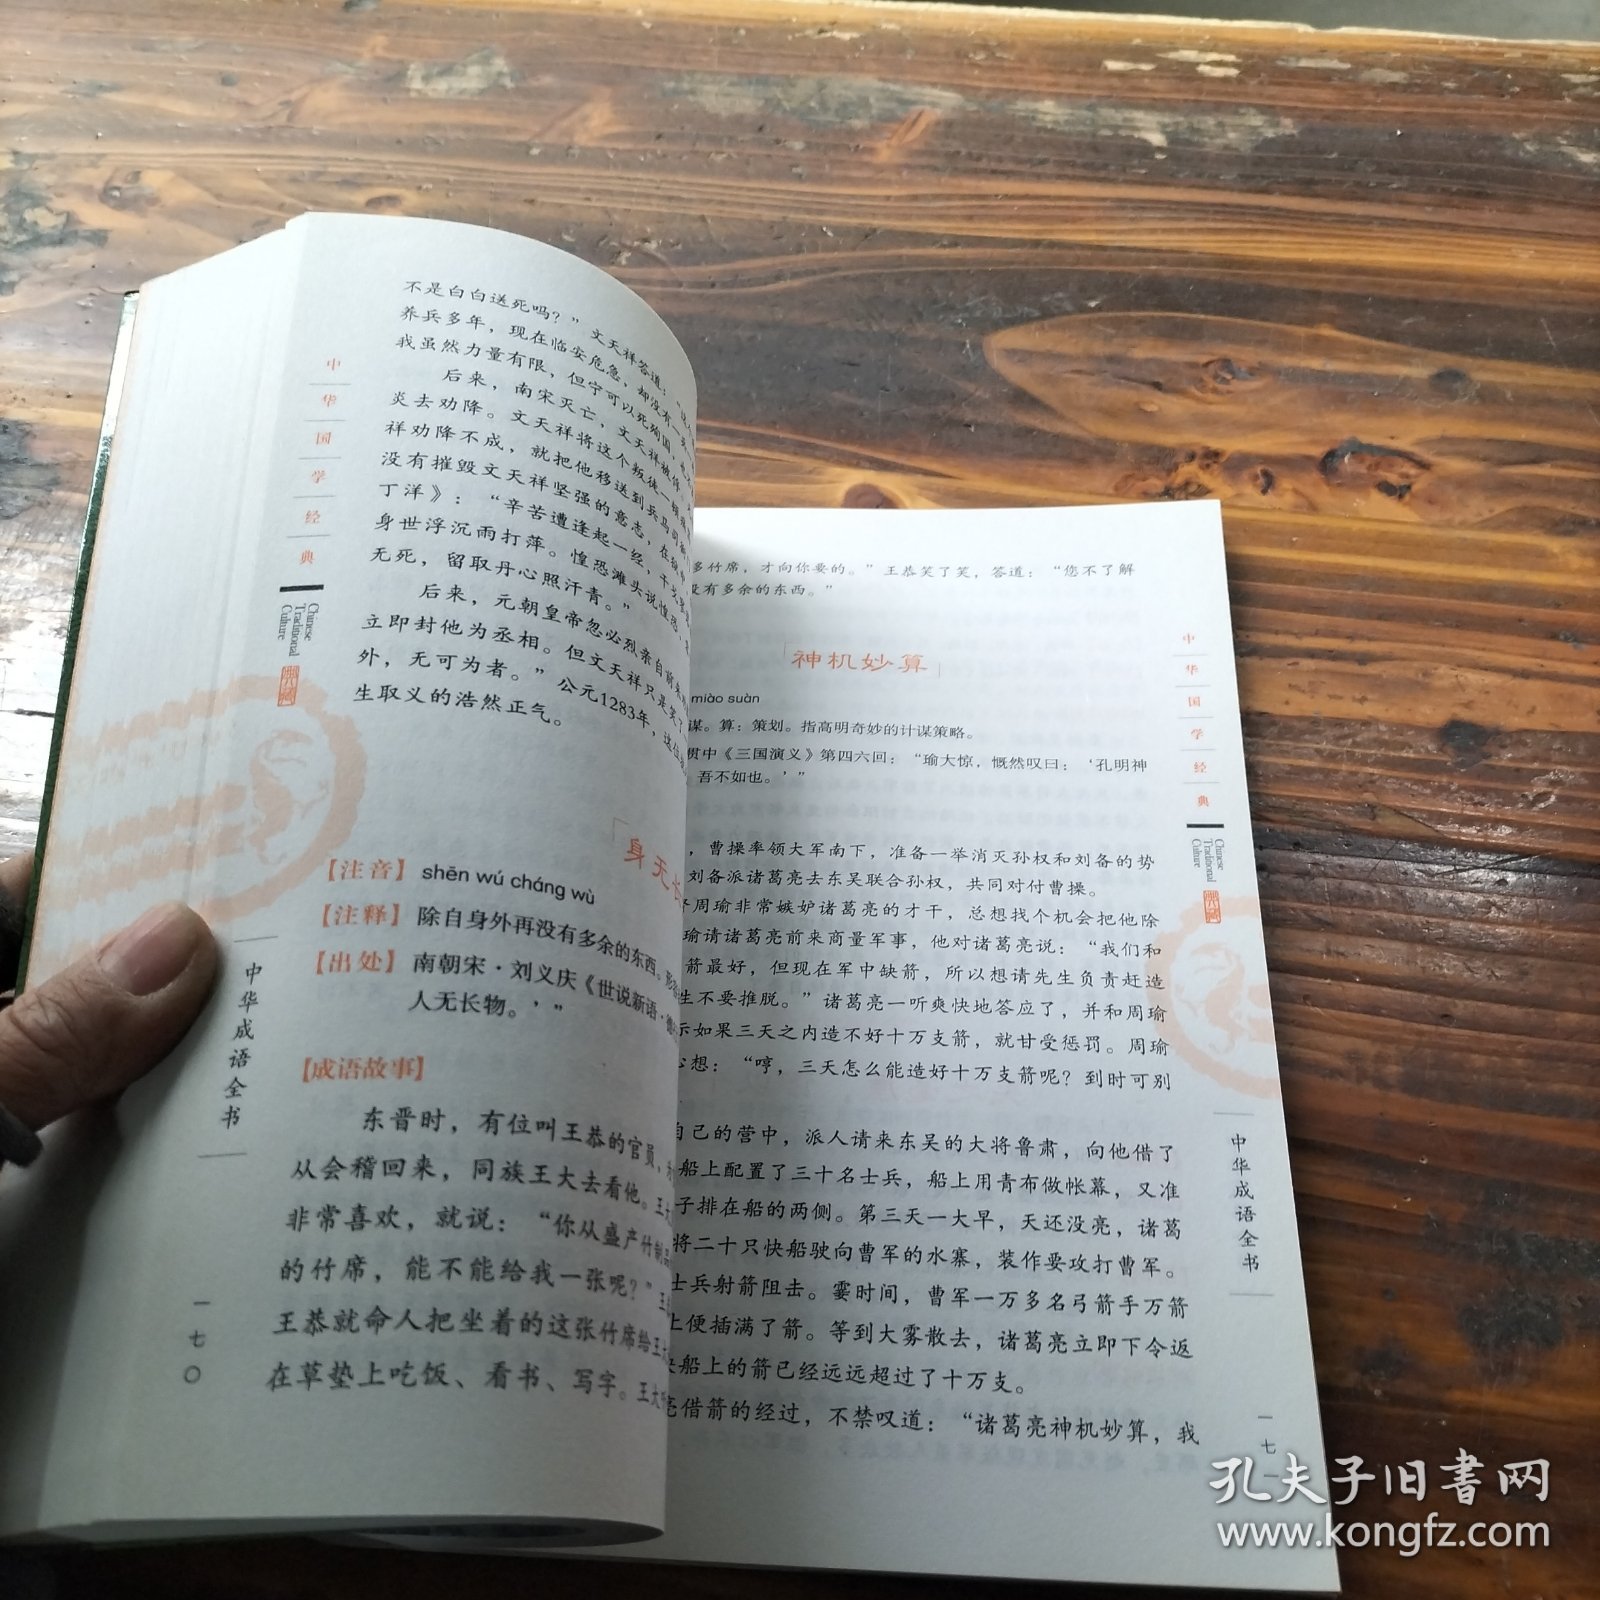 不是白白送死吗？”文天祥答道：
养兵多年，现在临安危急，却没有一兵
我虽然力量有限，但宁可以死殉国，
后来，南宋灭亡，文天祥被俘。
炎去劝降。文天祥将这个叛徒一顿
祥劝降不成，就把他移送到兵马司
没有摧毁文天祥坚强的意志，在狱中
丁洋》：“辛苦遭逢起一经，干戈寥
身世浮沉雨打萍。惶恐滩头说惶恐，
无死，留取丹心照汗青。”
后来，元朝皇帝忽必烈亲自前来
立即封他为丞相。但文天祥只是笑了
外，无可为者。”公元1283年，这位
生取义的浩然正气。
「身无长
【注音】shēn wú cháng wù
【注释】除自身外再没有多余的东西。
【出处】南朝宋·刘义庆《世说新语·德
人无长物。’”
【成语故事】
东晋时，有位叫王恭的官员，
从会稽回来，同族王大去看他。王大
非常喜欢，就说：“你从盛产竹
的竹席，能不能给我一张呢？”王
王恭就命人把坐着的这张竹席给王大
在草垫上吃饭、看书、写字。王大
中华国学经典
Chinese
Traditional
Culture
中华成语全书
一七〇
多竹席，才向你要的。”王恭笑了笑，答道：“您不了解
没有多余的东西。”
「神机妙算」
miào suàn
谋。算：策划。指高明奇妙的计谋策略。
贯中《三国演义》第四六回：“瑜大惊，慨然叹曰：‘孔明神
吾不如也。’”
，曹操率领大军南下，准备一举消灭孙权和刘备的势
刘备派诸葛亮去东吴联合孙权，共同对付曹操。
周瑜非常嫉妒诸葛亮的才干，总想找个机会把他除
瑜请诸葛亮前来商量军事，他对诸葛亮说：“我们和
箭最好，但现在军中缺箭，所以想请先生负责赶造
生不要推脱。”诸葛亮一听爽快地答应了，并和周瑜
示如果三天之内造不好十万支箭，就甘受惩罚。周瑜
心想：“哼，三天怎么能造好十万支箭呢？到时可别
自己的营中，派人请来东吴的大将鲁肃，向他借了
船上配置了三十名士兵，船上用青布做帐幕，又准
子排在船的两侧。第三天一大早，天还没亮，诸葛
将二十只快船驶向曹军的水寨，装作要攻打曹军。
士兵射箭阻击。霎时间，曹军一万多名弓箭手万箭
上便插满了箭。等到大雾散去，诸葛亮立即下令返
船上的箭已经远远超过了十万支。
亮借箭的经过，不禁叹道：“诸葛亮神机妙算，我
中华国学经典
Chinese
Traditional
Culture
中华成语全书
一七一
孔夫子旧书网
www.kongfz.com